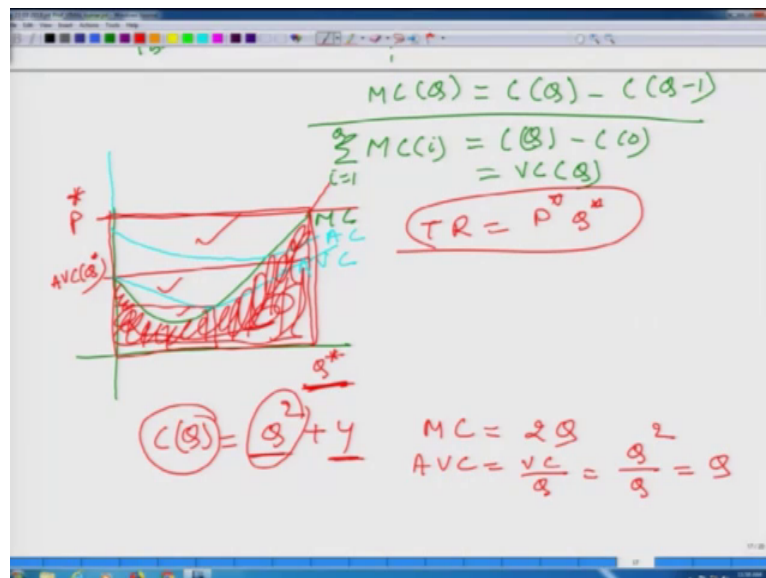 MC(Q) = C(Q) - C(Q-1)
Q
∑ MC(i) = C(Q) - C(0)
i=1
= VC(Q)
TR = P* Q*
P*
MC
AC
AVC
AVC(Q*)
Q*
C(Q) = Q² + 4
MC = 2Q
AVC = VC/Q = Q²/Q = Q